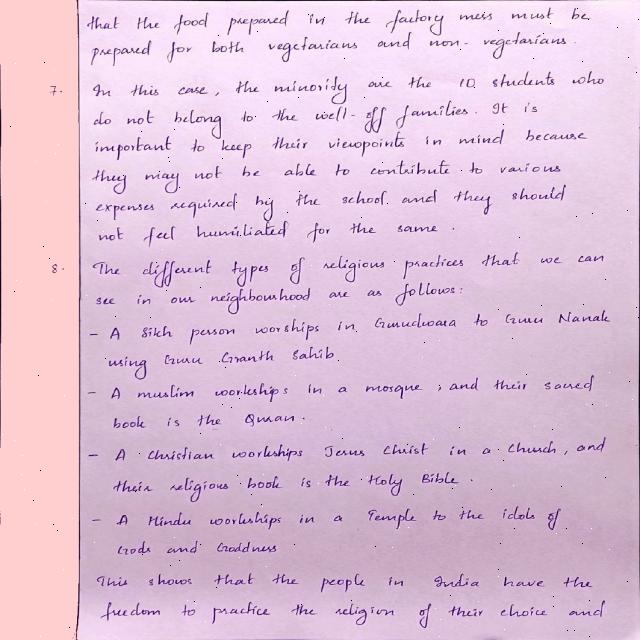 that the food prepared in the factory mess must be
prepared for both vegetarians and non-vegetarians.
7. In this case, the minority are the 10 students who
do not belong to the well-off families. It is
important to keep their viewpoints in mind because
they may not be able to contribute to various
expenses required by the school and they should
not feel humiliated for the same.
8. The different types of religious practices that we can
see in our neighbourhood are as follows:
- A Sikh person worships in Gurudwara to Guru Nanak
using Guru Granth Sahib.
- A muslim workships in a mosque, and their sacred
book is the Quran.
- A Christian workships Jesus Christ in a Church, and
their religious book is the Holy Bible.
- A Hindu workships in a Temple to the idols of
Gods and Goddness
This shows that the people in India have the
freedom to practice the religion of their choice and